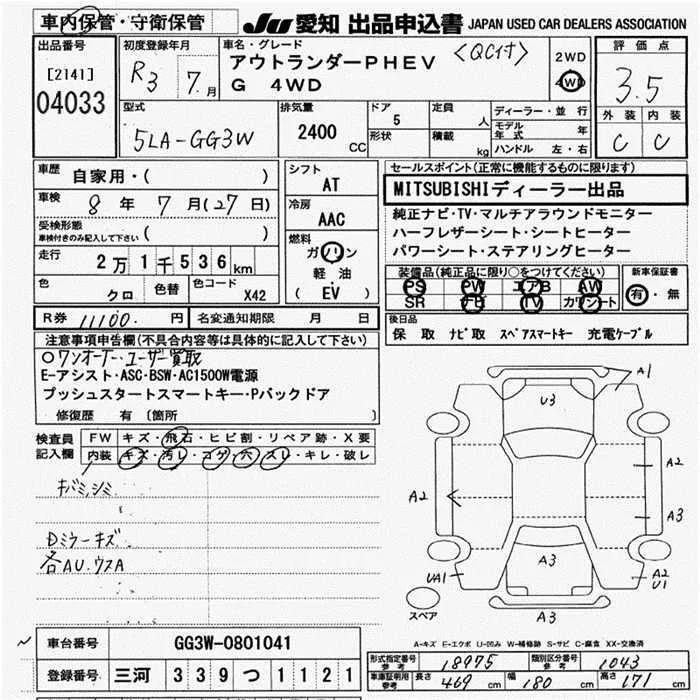 車内保管・守衛保管 JU 愛知 出品申込書 JAPAN USED CAR DEALERS ASSOCIATION
出品番号 初度登録年月 車名・グレード 評価点
[2141] R3 7月 アウトランダーPHEV <QC付> 2WD 3.5
04033 G 4WD 4WD
型式 排気量 ドア 定員 ディーラー・並行 外装 内装
5LA-GG3W 2400 CC 5 人 モデル年式 年 C C
形状 積載 kg ハンドル 左・右
車歴 自家用・( ) シフト セールスポイント(正常に機能するものに限ります)
車検 8年 7月(27日) AT MITSUBISHIディーラー出品
受検形態 冷房 純正ナビ・TV・マルチアラウンドモニター
車検付きのみ記入して下さい ( ) AAC ハーフレザーシート・シートヒーター
走行 2万1千536km 燃料 パワーシート・ステアリングヒーター
色 色替 色コード ガソリン 装備品(純正品に限り○をつけてください) 新車保証書
クロ X42 軽油 PS PW エアB AW 有・無
( EV ) SR ナビ TV カワシート
R券 11100.円 名変通知期限 月 日 後日品
注意事項申告欄(不具合内容等は具体的に記入して下さい) 保 取 ナビ取 スペアスマートキー 充電ケーブル
○ワンオーナー・ユーザー買取
E-アシスト・ASC・BSW・AC1500W電源
プッシュスタートスマートキー・Pバックドア
修復歴 有 〔箇所 〕
検査員記入欄 FW キズ・飛石・ヒビ割・リペア跡・X要
内装 キズ・汚レ・コゲ・穴・スレ・キレ・破レ
キバミ,シミ
Dミラーキズ
各AU.ウスA
A1
U3
A2
A2
A3
A3
UA1
A2
U1
A3
スペア
A-キズ E-エクボ U-凹み W-補修跡 S-サビ C-腐食 XX-交換済
車台番号 GG3W-0801041
登録番号 三河 339 つ 1121
形式指定番号 参考 18975 類別区分番号 参考 1043
車庫証明用 参考 長さ 469 cm 幅 180 cm 高さ 171 cm